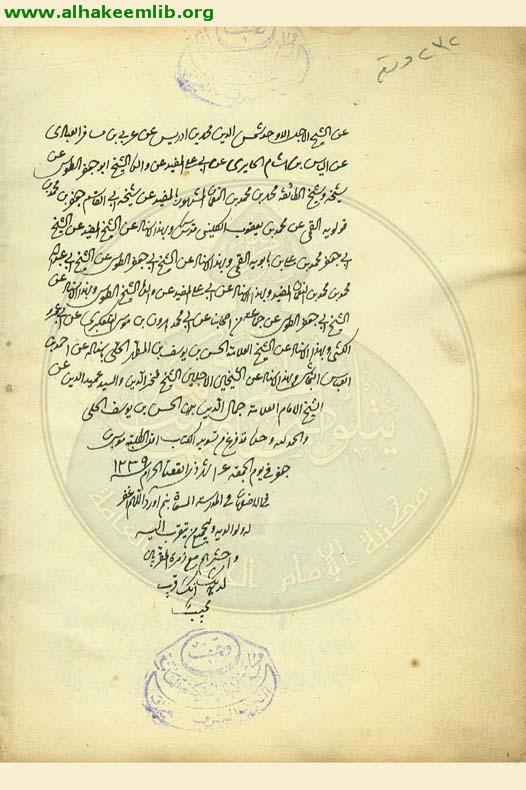 www.alhakeemlib.org
٢٧٢ ورقه
عن الشيخ الاجل الاوحد شمس الدين محمد بن ادريس عن عربي بن مسافر العبادي
عن الياس بن هشام الحايري عن ابي علي المفيد عن والده الشيخ ابو جعفر الطوسي عن
شيخه وشيخ الطائفة محمد بن محمد بن النعمان المشهور بالمفيد عن شيخه ابي القاسم جعفر بن محمد بن
قولويه القمي عن محمد بن يعقوب الكليني وبهذا الاسناد عن الشيخ المفيد عن الشيخ
ابي جعفر محمد بن علي بن بابويه القمي وبهذا الاسناد عن الشيخ ابي جعفر الطوسي عن الشيخ ابي عبد الله
محمد بن محمد بن النعمان المفيد وبهذا الاسناد عن ابي علي المفيد عن والده الشيخ الطوسي وبهذا الاسناد عن
الشيخ ابي جعفر الطوسي عن جماعة من اصحابنا عن ابي محمد هارون بن موسى التلعكبري عن ابي عمرو
الكشي وبهذا الاسناد عن الشيخ العلامة الحسن بن يوسف بن المطهر الحلي باسناده عن احمد بن
العباس النجاشي وبهذا الاسناد عن الشيخين الاجلين الشيخ فخر الدين والسيد عميد الدين عن
الشيخ الامام العلامة جمال الدين الحسن بن يوسف الحلي
والحمد لله وحده قد فرغ من تسويد الكتاب اقل الطلبة موسى
جعفر في يوم الجمعة القعدة الحرام ١٢٣٩
في المدرسة اللهم اغفر
له ولوالديه ولجميع من ينتسب اليه
واحشرهم مع زمرة المقربين
لديك انك قريب
مجيب
وقف